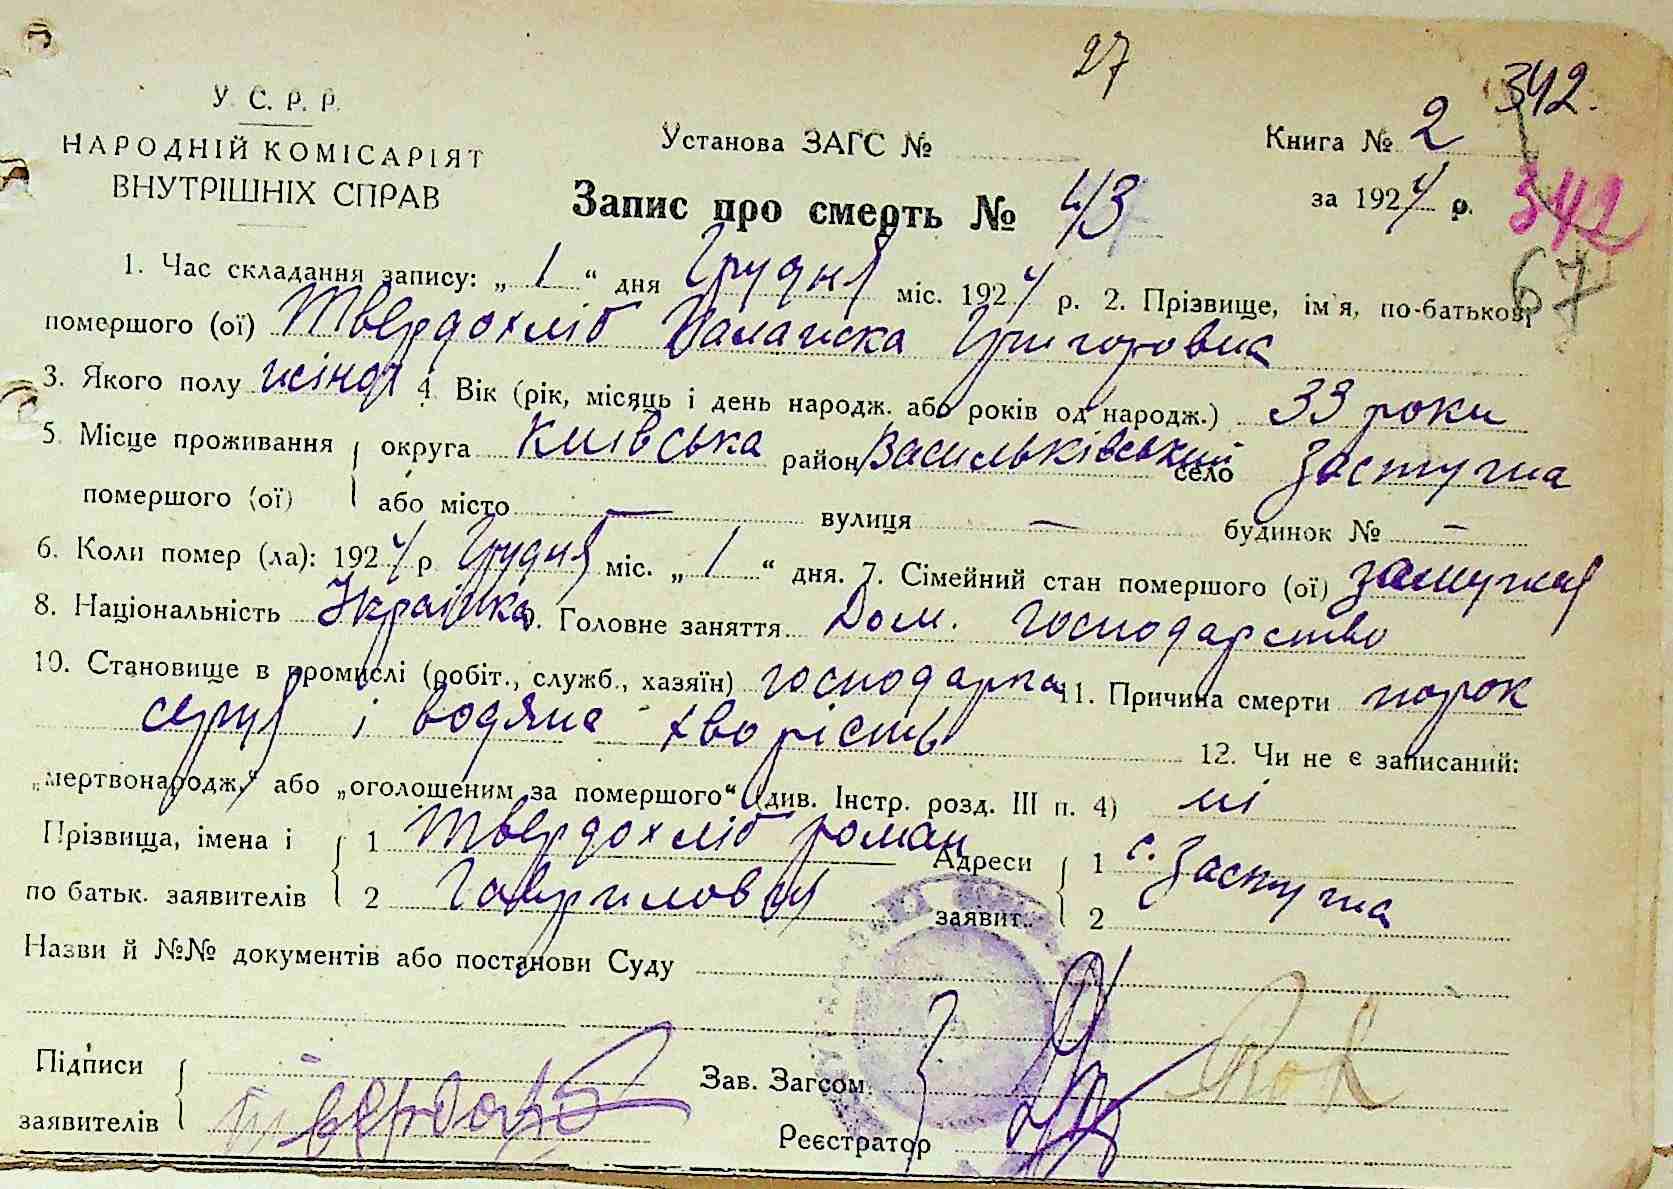 27
342.
У. С. Р. Р.
НАРОДНІЙ КОМІСАРІЯТ
ВНУТРІШНІХ СПРАВ
Установа ЗАГС №
Книга № 2
Запис про смерть № 43
за 1924 р.
342
67
1. Час складання запису: „ 1 “ дня Грудня міс. 1924 р. 2. Прізвище, ім'я, по-батькові
помершого (ої) Твердохліб Палажка Григоровна
3. Якого полу жіноч 4. Вік (рік, місяць і день народж. або років од народж.) 33 роки
5. Місце проживання округа Київська район Васильківський село Застугна
помершого (ої) або місто — вулиця — будинок № —
6. Коли помер (ла): 1924 р Грудня міс. „ 1 “ дня. 7. Сімейний стан помершого (ої) замужня
8. Національність Українка 9. Головне заняття Дом. господарство
10. Становище в промислі (робіт., служб., хазяїн) господарка 11. Причина смерти порок
серця і водяна хворість 12. Чи не є записаний:
„мертвонародж.“ або „оголошеним за помершого“ (див. Інстр. розд. III п. 4) ні
Прізвища, імена і 1 Твердохліб Роман Адреси 1 с. Застугна
по батьк. заявителів 2 Гаврилович заявит. 2
Назви й №№ документів або постанови Суду
Підписи
заявителів
Зав. Загсом
Реєстратор